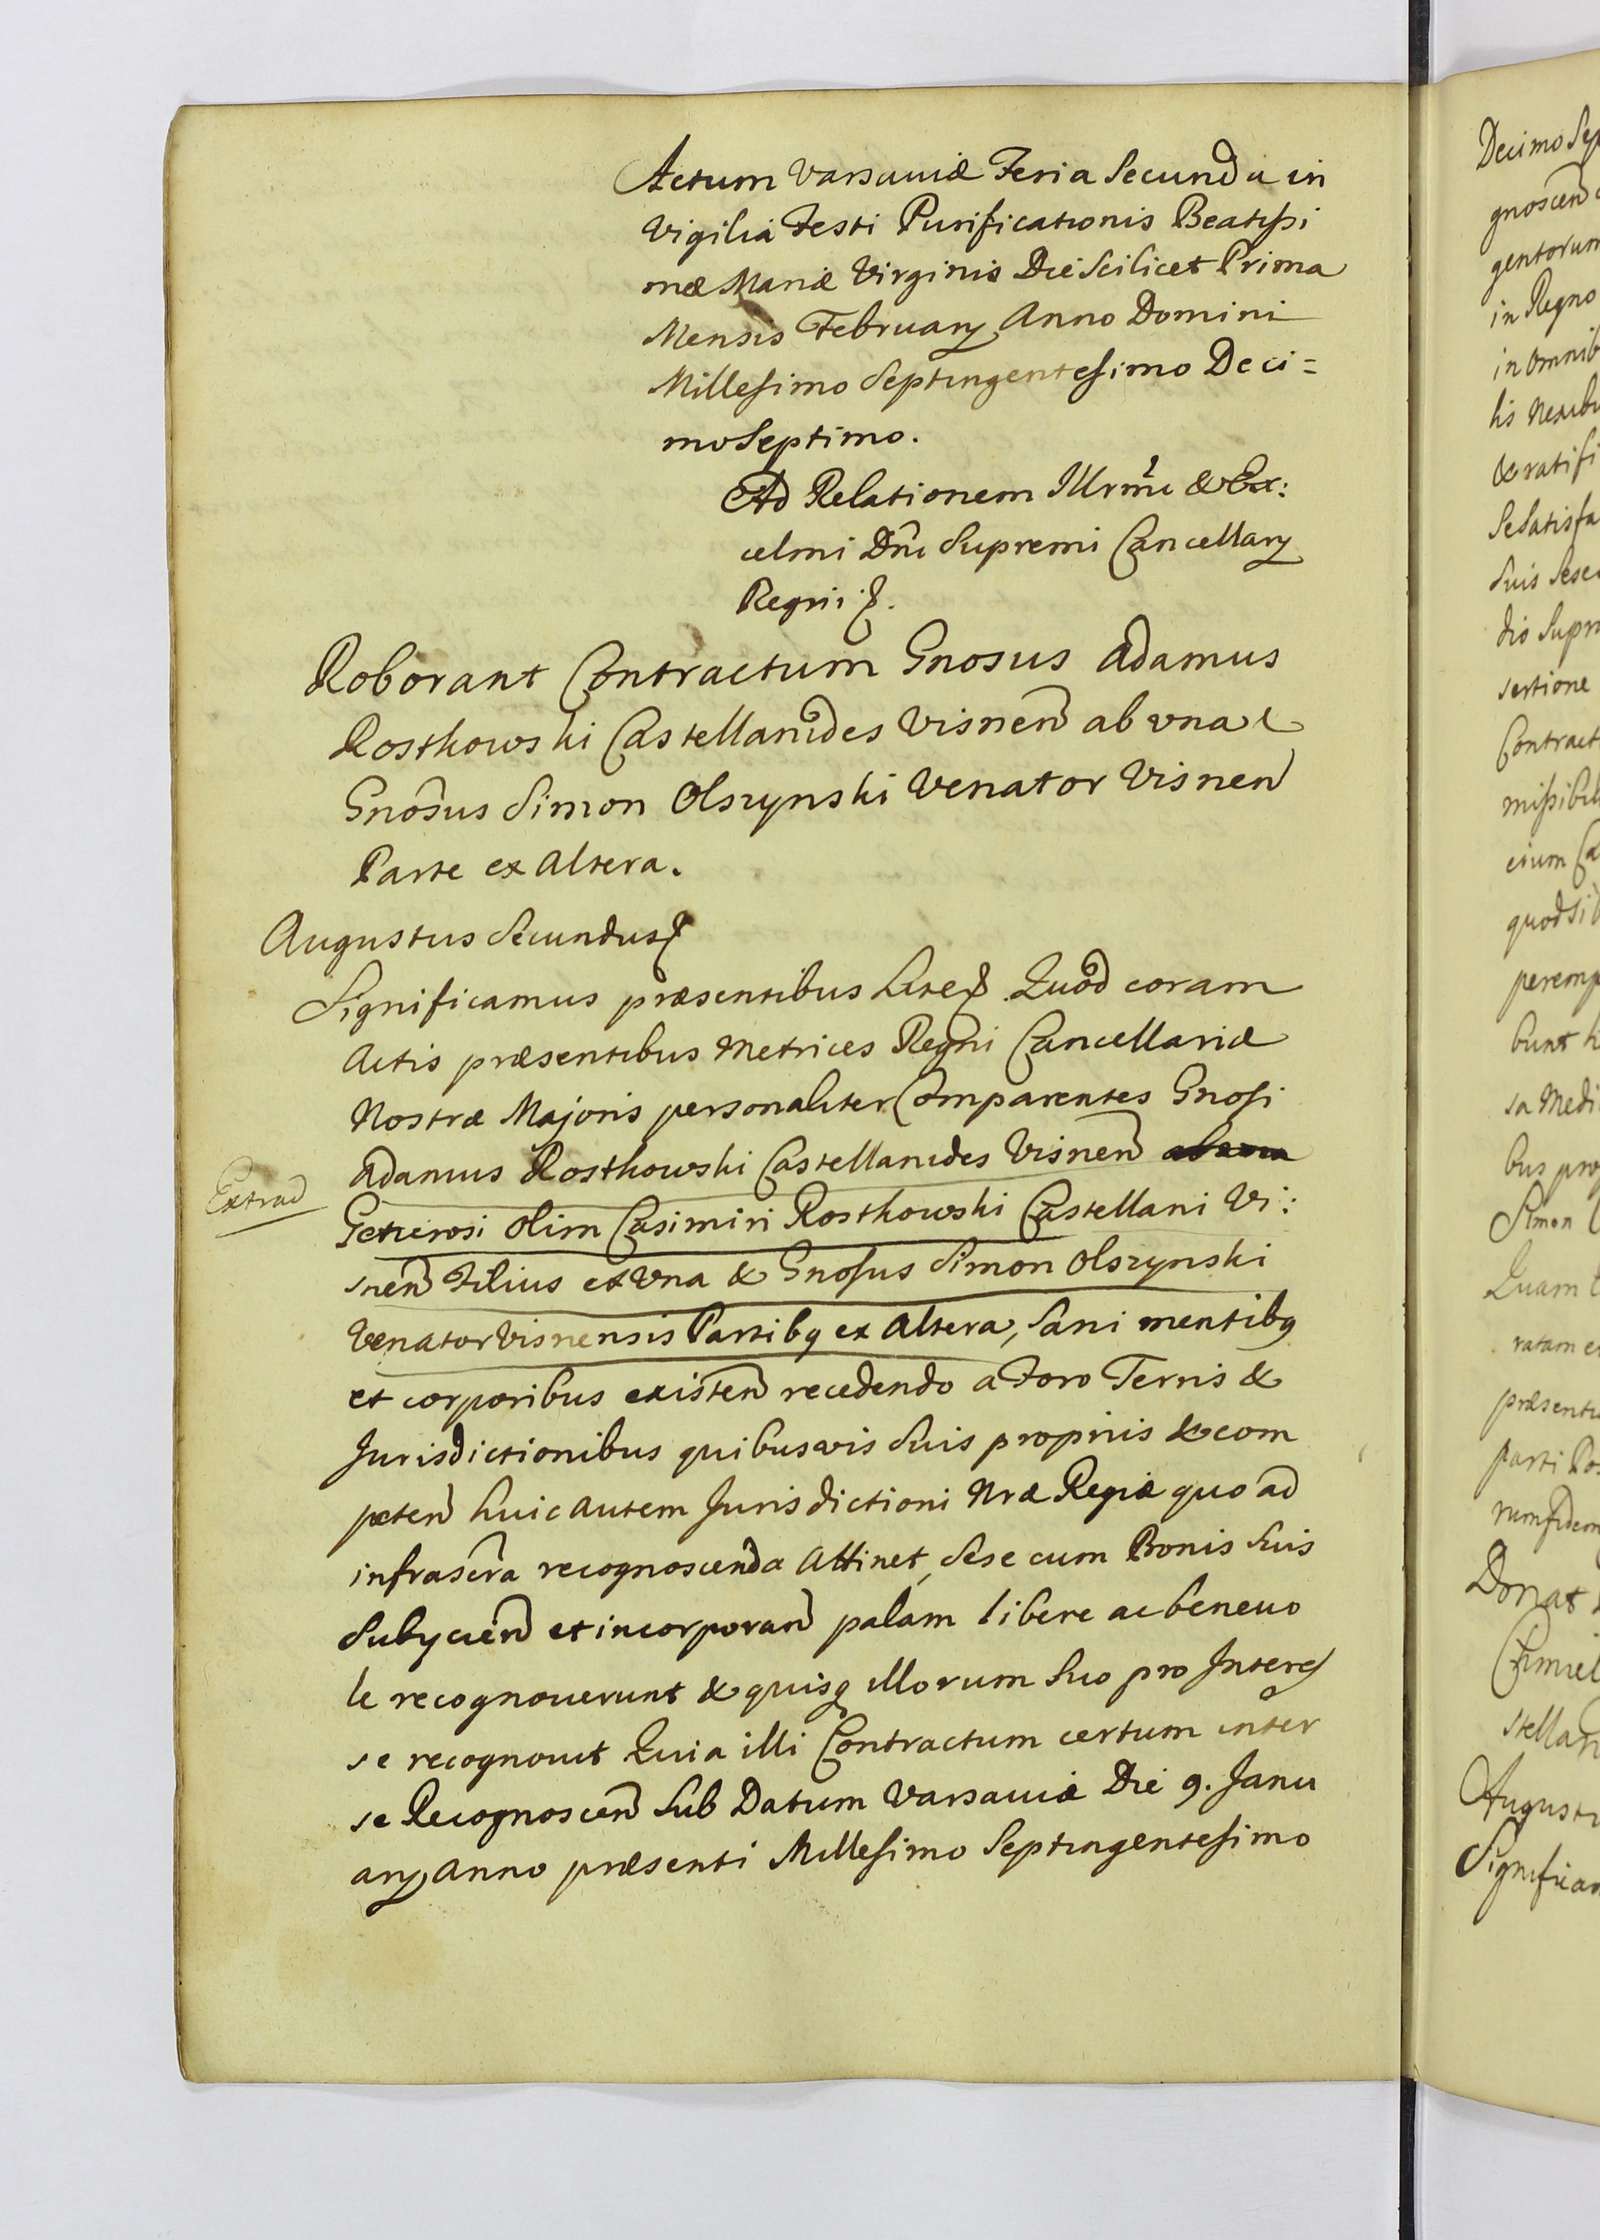 Actum Varsaviæ Feria Secunda in
Vigilia Festi Purificationis Beatissi
mæ Mariæ Virginis Die Scilicet Prima
Mensis Februarij Anno Domini
Millesimo Septingentesimo Deci=
mo Septimo.
Ad Relationem Illrmi & Ex:
celmi Dni Supremi Cancellarij
Regni
Roborant Contractum Gnosus Adamus
Rosthowski Castellanides Visnen ab una &
Gnosus Simon Olszynski Venator Visnen
Parte ex Altera.
Augustus Secundus
Significamus præsentibus Lite Quod coram
Actis præsentibus Metrices Regni Cancellariæ
Nostræ Majoris personaliter Comparentes Gnosi
Adamus Rosthowski Castellanides Visnen
Extrad
Generosi olim Casimiri Rosthowski Castellani Vi:
snen Filius ex Vna & Gnosus Simon Olszynski
Venator Visnensis Partibq ex Altera, Sani mentibq
et corporibus existen recedendo a Foro Terris &
Jurisdictionibus quibusvis Suis proprijs & com
peten huic autem Jurisdictioni Nræ Regiæ quo ad
infrascra recognoscenda Attinet, Sese cum Bonis Suis
Subycien et incorporan palam libere ac benevo
le recognoverunt & quisq illorum Suo pro Interes
se recognovit Quia illi Contractum certum inter
se Recognoscen Sub Datum Varsaviæ Die 9. Janu
arij Anno præsenti Millesimo Septingentesimo
Decimo Sep
gnoscen
gentorum
in Regno
in Omnib
lis Nexibu
& ratifi
Se Satisfa
Suis Sese
dio Supra
sertione
Contract
missibil
cium Ca
quod si
peremp
bunt h
sa Medi
bus pro
Simon
Quam
ratam e
præsenti
parti Po
rum fidem
Donat
Chmiel
stellan
Augustu
Significam